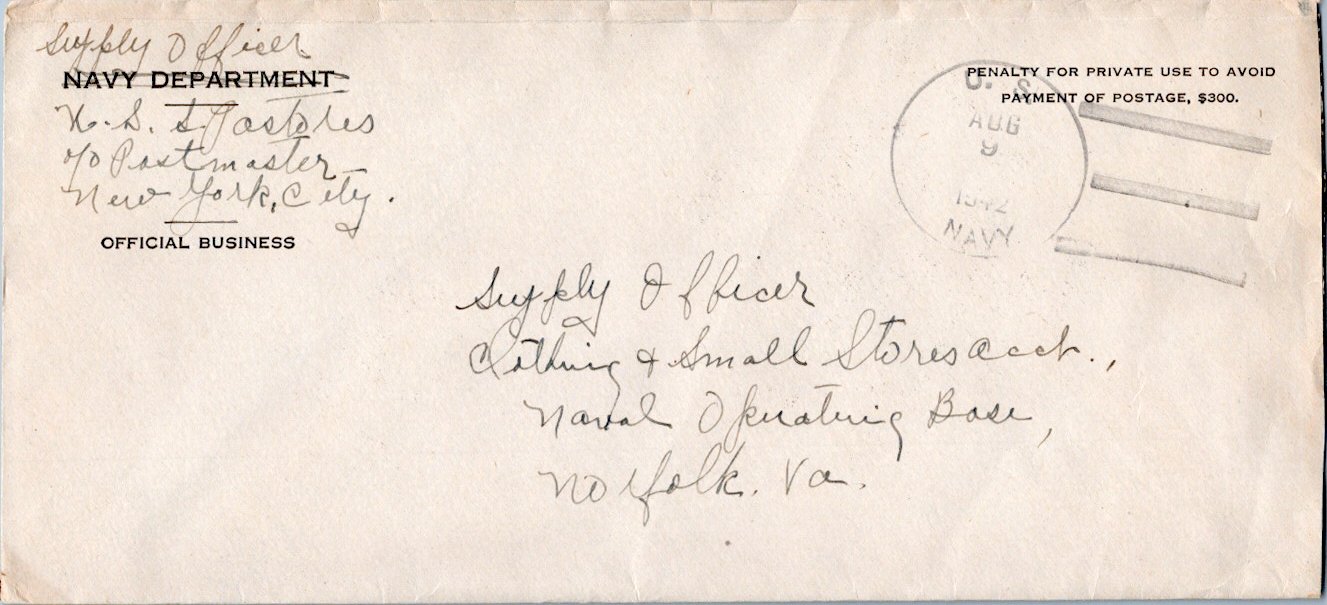 Supply Officer
NAVY DEPARTMENT
U.S.S. Pastores
c/o Postmaster
New York, City.
OFFICIAL BUSINESS
PENALTY FOR PRIVATE USE TO AVOID
PAYMENT OF POSTAGE, $300.
U. S.
AUG
9
1942
NAVY
Supply Officer
Clothing & Small Stores acct.,
Naval Operating Base,
Norfolk. Va.